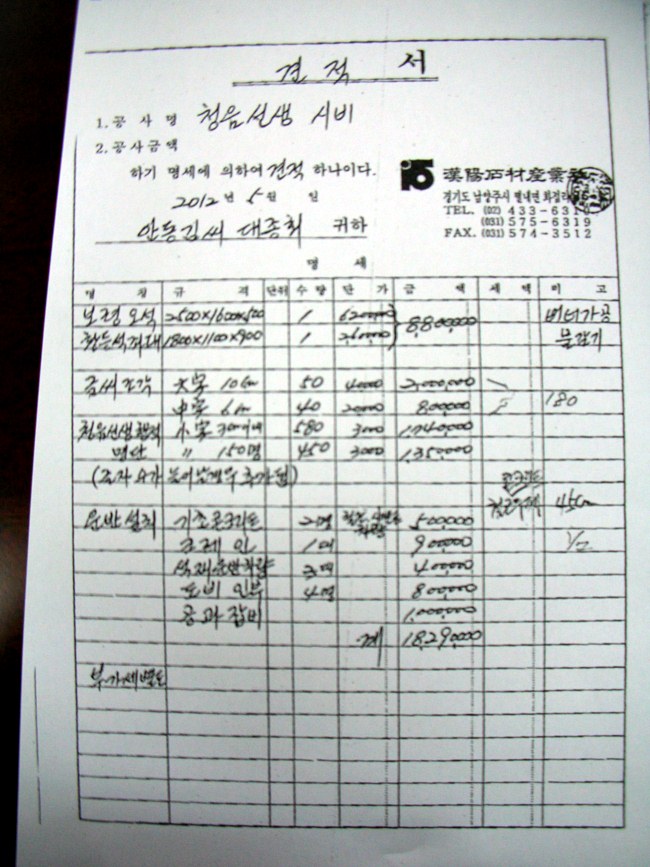 견적서
1. 공사명 청음선생 시비
2. 공사금액
하기 명세에 의하여 견적 하나이다.
2012년 5월 일
안동김씨 대종회 귀하
漢陽石材産業
경기도 남양주시 별내면
TEL. (02) 433-631
(031) 575-6319
FAX. (031) 574-3512
명세
명칭 규격 단위 수량 단가 금액 세액 비고
보령오석 2500X1600X500 1 6200000 버너가공
1800X1100X900 1 2600000 8,800000 물갈기
글씨조각 大字 10cm 50 40000 2,000,000
中字 6cm 40 20000 800000 180
청음선생 小字 580 3000 1,740000
명단 〃 150명 450 3000 1,350000
운반설치 기초콘크리트 2명 500000 45cm
크레인 1대 900000 1/2
석재운반차량 3대 400000
인부 4명 800000
공과잡비 1,000,000
계 18,290000
부가세별도